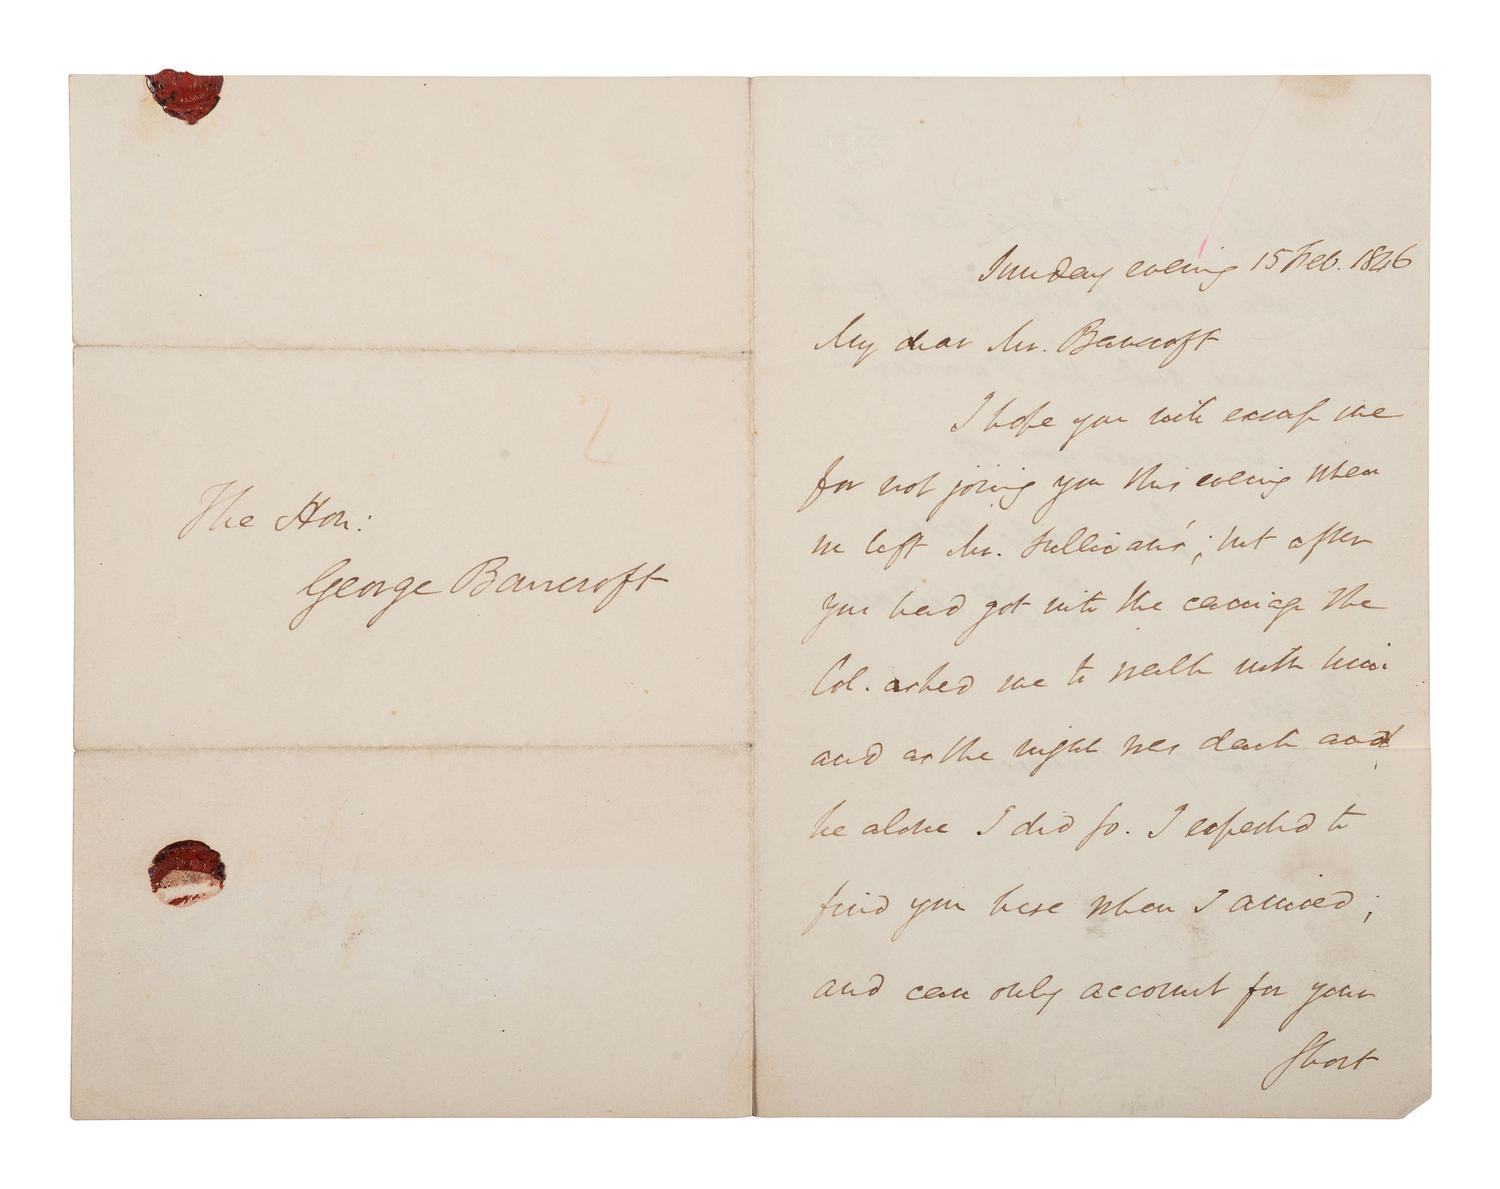 The Hon:
George Bancroft
Sunday evening 15 Feb. 1846
My dear Mr. Bancroft
I hope you will excuse me
for not joining you this evening when
we left Mr. Sullivan's; but after
you had got into the carriage the
Col. asked me to walk with him
and as the night was dark and
he alone I did so. I expected to
find you here when I arrived;
and can only account for your
short